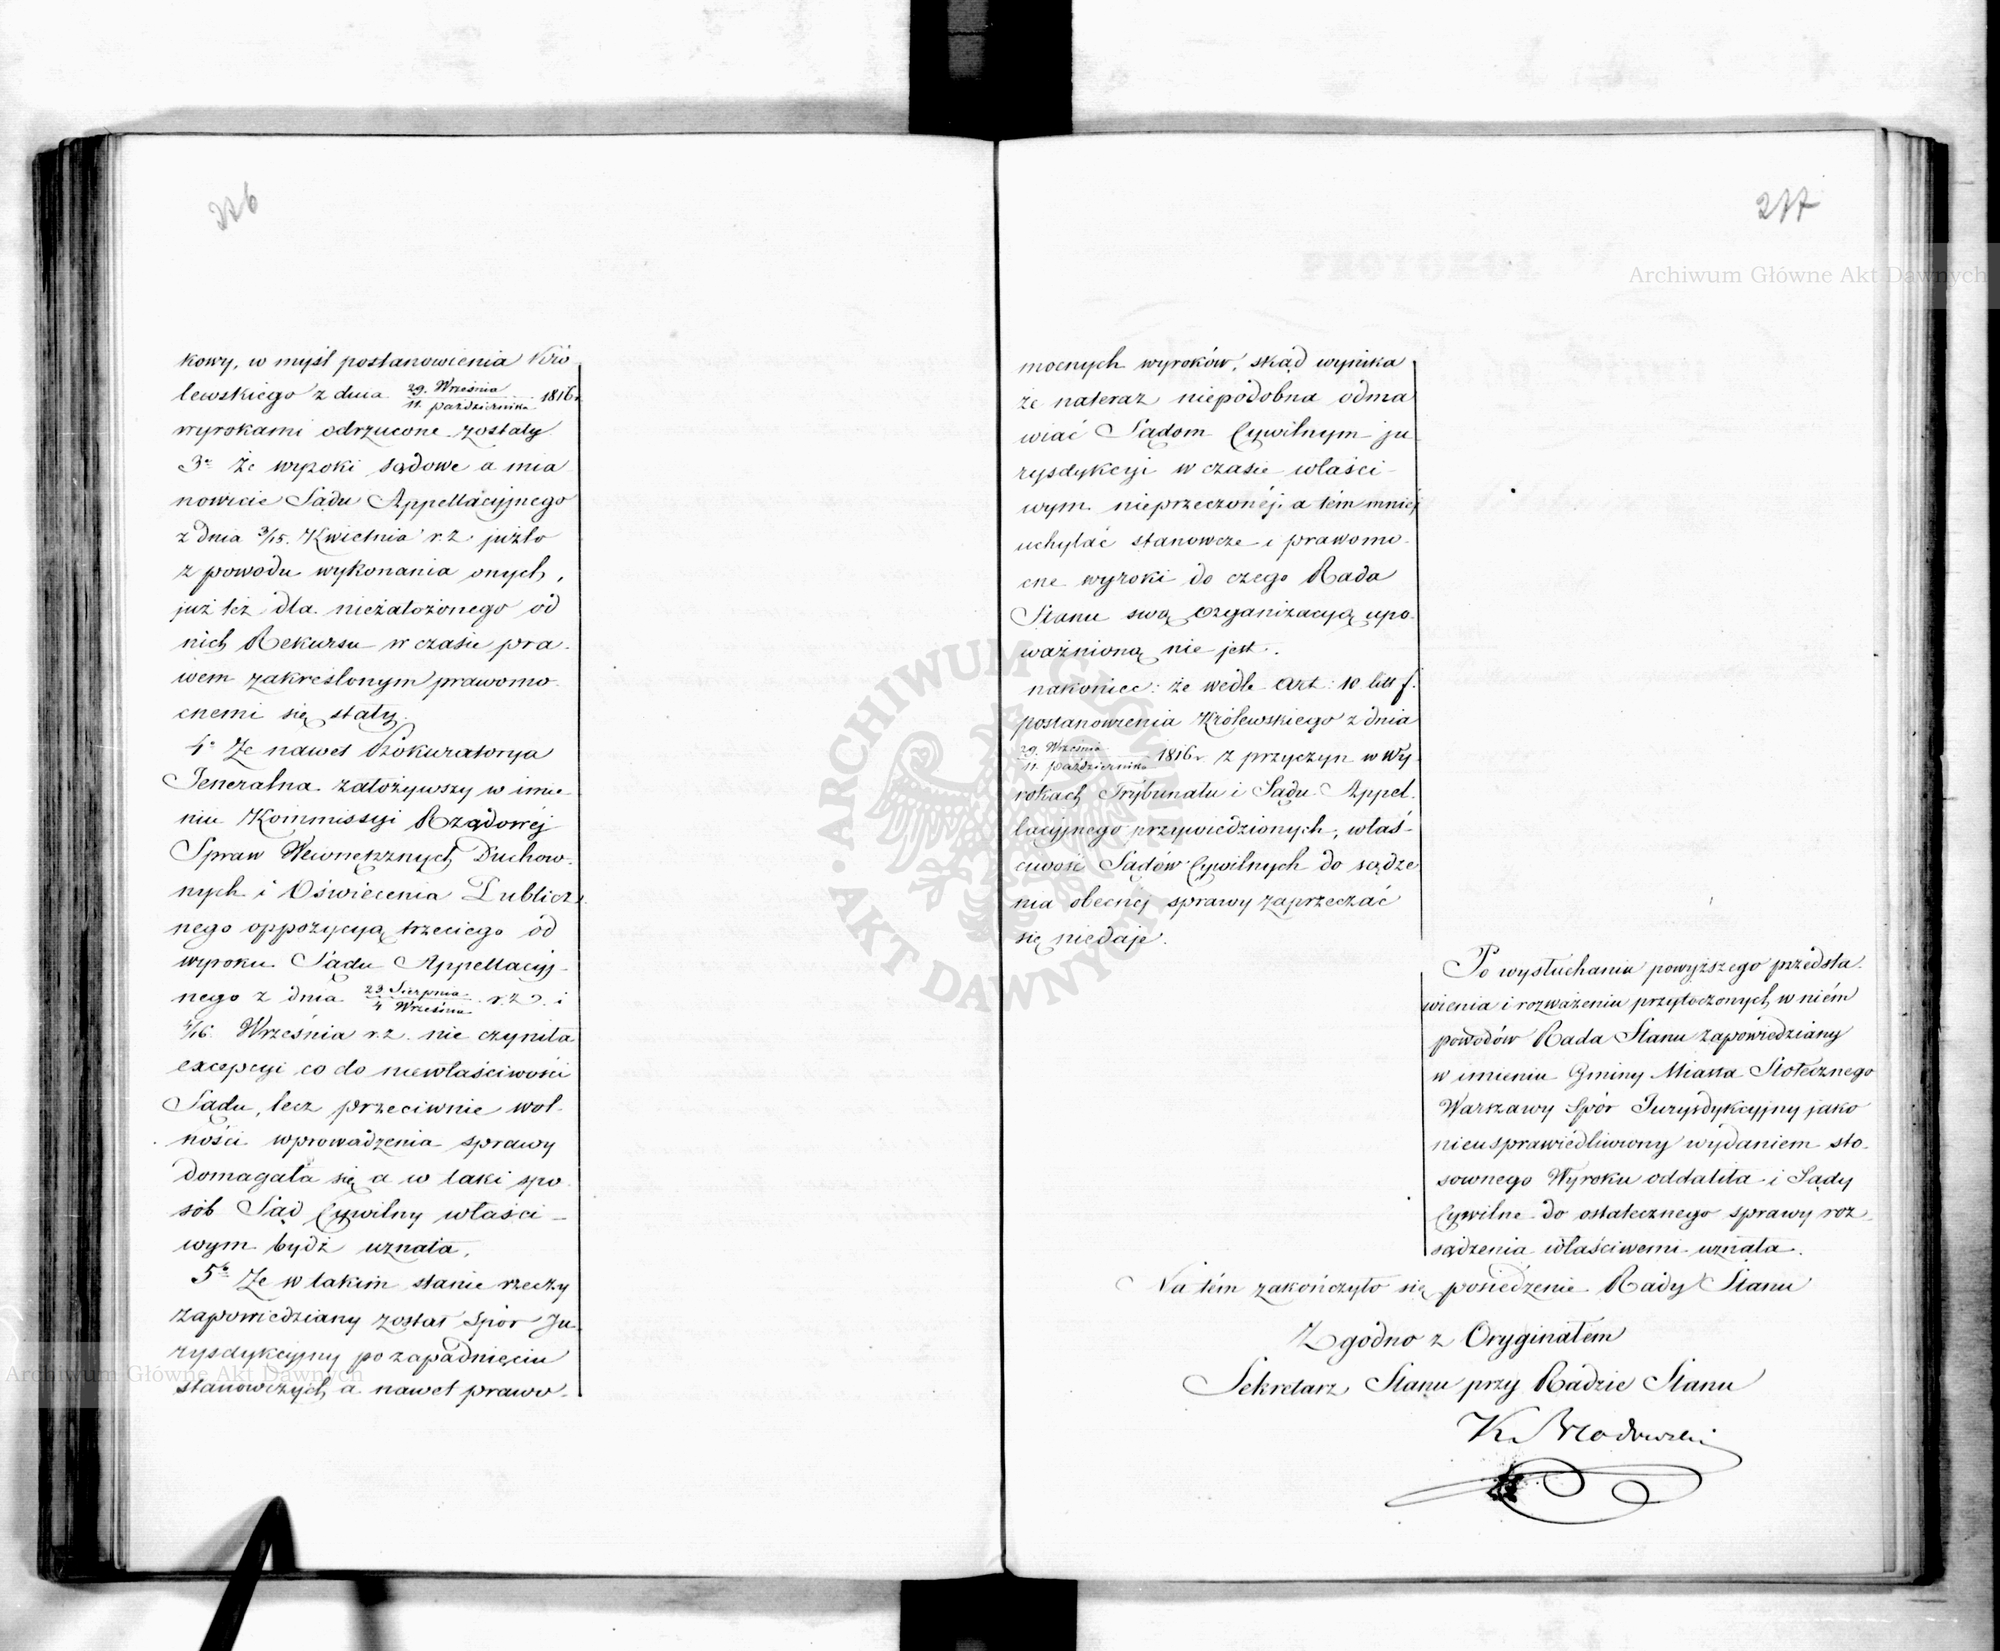 276
kowy, w myśl postanowienia Kró
lewskiego z dnia 29. Września / 11. października 1816 r.
wyrokami odrzucone zostały
3e Że wyroki sądowe a mia
nowicie Sądu Appellacyjnego
z dnia 3/15. Kwietnia r. z. jużto
z powodu wykonania onych,
już też dla niezałożonego od
nich Rekursu w czasie pra-
wem zakreślonym prawomo-
cnemi się stały.
4e Że nawet Prokuratorya
Jeneralna założywszy w imie-
niu Kommissyi Rządowéj
Spraw Wewnętrznych Duchow-
nych i Oświecenia Publicz-
nego oppozycyą trzeciego od
wyroku Sądu Appellacyj-
nego z dnia 23 Sierpnia / 4 Września r. z. i
4/16. Września r. z. nie czyniła
excepcyi co do niewłaściwości
Sądu, lecz przeciwnie wol-
ności wprowadzenia sprawy
domagała się a w taki spo-
sób Sąd Cywilny właści-
wym bydź uznała.
5e Że w takim stanie rzeczy
zapowiedziany został Spór Ju-
rysdykcyjny po zapadnięciu
stanowczych a nawet prawo-
277
PROTOKÓŁ
mocnych wyroków, skąd wynika
że nateraz niepodobna odma
wiać Sądom Cywilnym ju-
rysdykcyi w czasie właści-
wym nieprzeczonéj, a tém mniéj
uchylać stanowcze i prawomo-
cne wyroki do czego Rada
Stanu swą Organizacyą upo-
ważnioną nie jest.
nakoniec: że wedle Art: 10 litt f.
postanowienia Królewskiego z dnia
29. Września / 11. października 1816 r. z przyczyn w Wy-
rokach Trybunału i Sądu Appel-
lacyjnego przywiedzionych, właś-
ciwość Sądów Cywilnych do sądze
nia obecnéj sprawy zaprzeczać
się niedaje.
Po wysłuchaniu powyższego przedsta-
wienia i rozważeniu przytoczonych w niém
powodów Rada Stanu zapowiedziany
w imieniu Gminy Miasta Stołecznego
Warszawy Spór Jurysdykcyjny jako
nieusprawiedliwiony wydaniem sto-
sownego Wyroku oddaliła i Sądy
Cywilne do ostatecznego sprawy roz-
sądzenia właściwemi uznała.
Na tém zakończyło się posiedzenie Rady Stanu
Zgodno z Oryginałem
Sekretarz Stanu przy Radzie Stanu
K. Brzodowski
Archiwum Główne Akt Dawnych
Archiwum Główne Akt Dawnych
ARCHIWUM GŁÓWNE AKT DAWNYCH